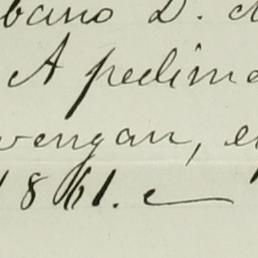 bano D.
A pedim
vengan, e
1861.